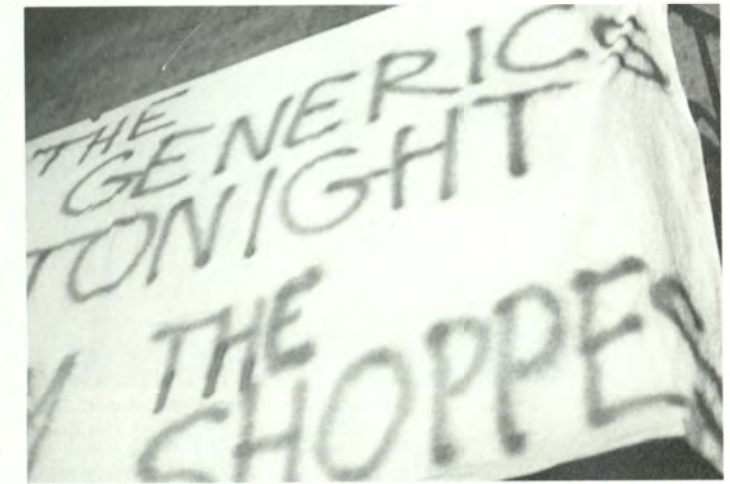 THE
GENERICS
TONIGHT
THE
SHOPPE